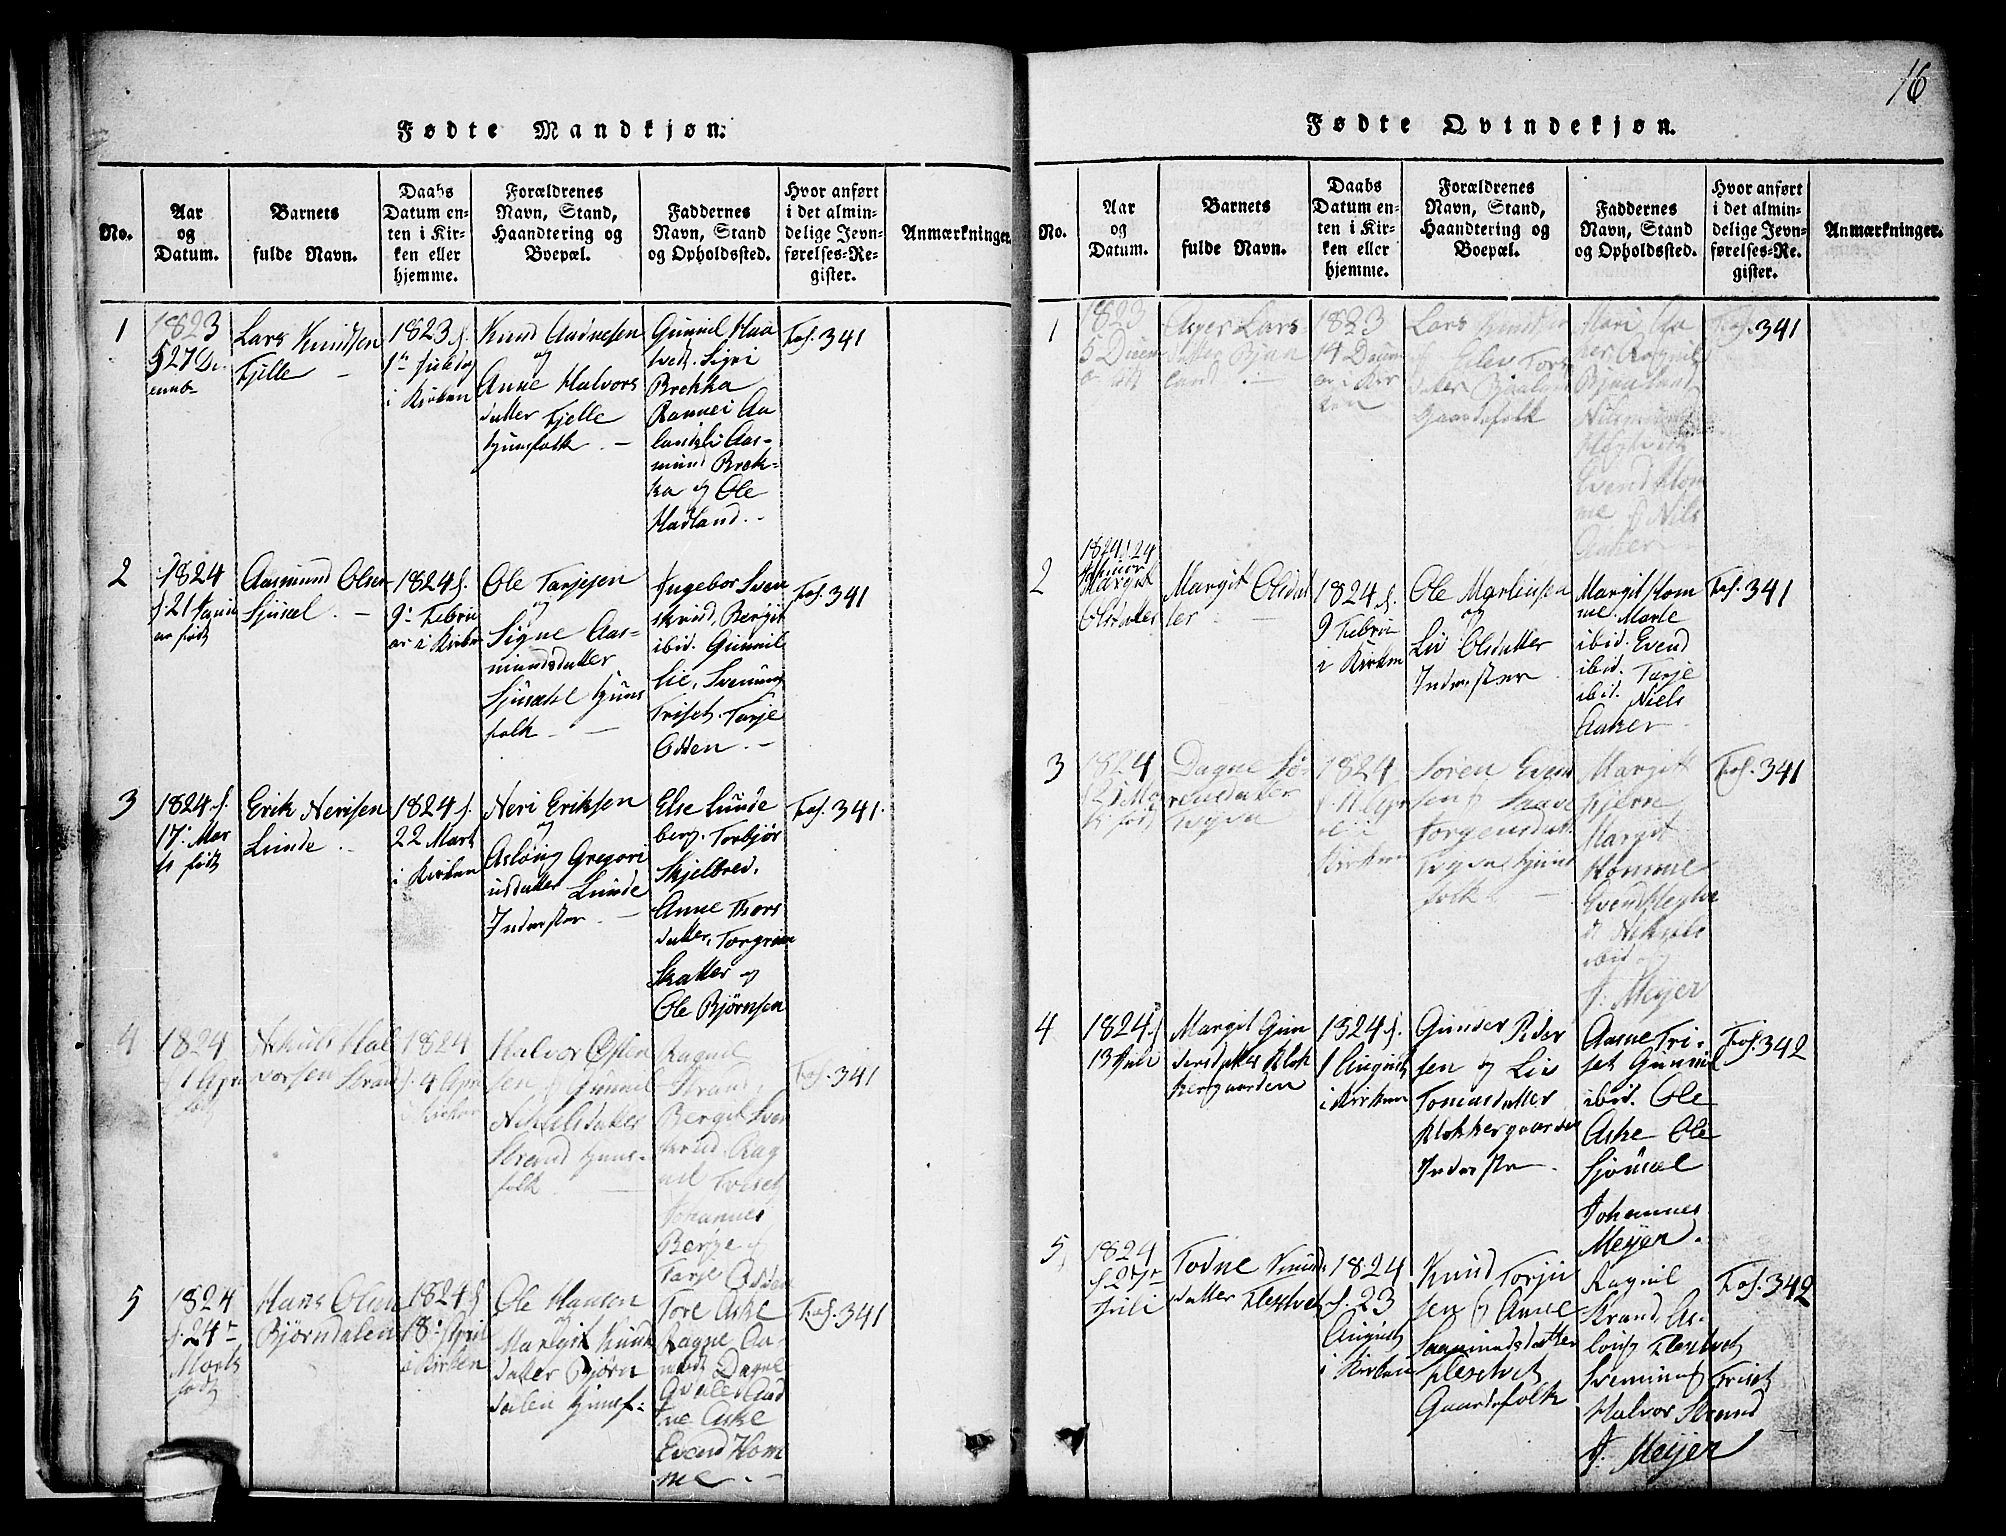 16
Fødte Mandkjøn.
No.
Aar
og
Datum.
Barnets
fulde Navn.
Daabs
Datum en-
ten i Kir-
ken eller
hjemme.
Forældrenes
Navn, Stand,
Haandtering og
Boepæl.
Faddernes
Navn, Stand
og Opholdssted.
Hvor anført
i det almin-
delige Jevn-
førelses-Re-
gister.
Anmærkninger.
1
1823
Lars Knudsen
Fjelle
1823
i Kirken
Knud Aadnesen
og
Anne Halvors
datter Fjelle
Gunnil Haa
tvedt. Sigri
Brekka
Rannei Aa
landsli Aas-
mund Brek-
ka og Ole
Hadland.
Fol. 341
2
1824
f. 21 Janu
ar født
Aasmund Olsen
1824 f.
9. Febru
ar i Kirken
Ole Tarjesen
og
Signe Aas-
mundsdatter
folk
Ingebor Sven
skrud, Bergit
ibid. Gunnil
Lie, Svenung
Triset. Tarje
Odden.
Fol. 341
3
1824 f.
17. Mar
ts født
Erik Nerisen
Lunde
1824 f.
22 Marts
i Kirken
Neri Eriksen
og
Aslöug Gregori
usdatter Lunde
Inderster
Else Lunde
berg. Torbjør
Skjelbred.
Anne Thors
datter, Torgrim
Skatter og
Ole Bjørnsen
Fol. 341.
4
1824
f 1 Apri
født
Nikuls Hal
vorsen Strand
1824
f. 4 Apri
i Kirken
Halvor Østen
sen og Gunnil
Nikulsdatter
Strand Huus-
folk
Ragnil
Strand,
Bergit Sven
skrud. Rag
nil Triset
Johannes
Berge og
Tarje Odden
Fol. 341
5
1824
f. 24
Marts
født
Hans Olsen
Bjørndalen
1824 f
18. April
i Kirken
Ole Hansen
og
Margit Knuds
datter Bjørn
dalen
Tore Aske
Ragne Aa-
Dagne
Aske
Evend Hom
me
Fol. 341
Fødte Qvindekjøn.
No.
Aar
og
Datum.
Barnets
fulde Navn.
Daabs
Datum en-
ten i Kir-
ken eller
hjemme.
Forældrenes
Navn, Stand,
Haandtering og
Boepæl.
Faddernes
Navn, Stand
og Opholdssted.
Hvor anført
i det almin-
delige Jevn-
førelses-Re-
gister.
Anmærkninger.
1
1823
5 Decem
Lars
datter Bjaa
land
1823
14 Decem
er i Kir
ken
Lars Knudsen
Gaardefolk
Mari Aa
ker Ragnil
Bjaaland
Evend Hom
me og Nils
Aaker
Fol. 341
2
Margit
Olsdatter
Margit Olsdat
ter
1824 f.
9 Februa
i Kirken
Ole Mortensen
og
Liv Olsdatter
Inderster
Margit Hom
me. Marte
ibid. Evend
ibid. Tarje
ibid. Niels
Aaker
Fol. 341
3
1824
født
Dagne Sø-
rensdatter
1824
i
Kirken
Søren Even
sen og
Jorgensdat
folk
Margit
Margit
Homme
ibid og
J. Meyer
Fol. 341
4
1824 f
13 Juli
Margit Gun
dersdatter Klok
kergaarden
1824 f.
1 August
i Kirken
Gunder Peder
sen og Liv
Tomasdatter
Klokkergaarden
Inderster
Aasne Tri-
set Gunnil
ibid. Ole
Aske Ole
Johannes
Meyer.
Fol. 342
5
1824
f 27
Juli
Todne Knuds
datter Flestvet
1824
f. 23
August
i Kirken
Knud Torju
sen og Anne
Saamundsdatter
Flestvet
Gaardefolk
Ragnil
Strand As-
loug Flestvet
Svenung Triset
Halvor Strand
J. Meyer
Fol. 342